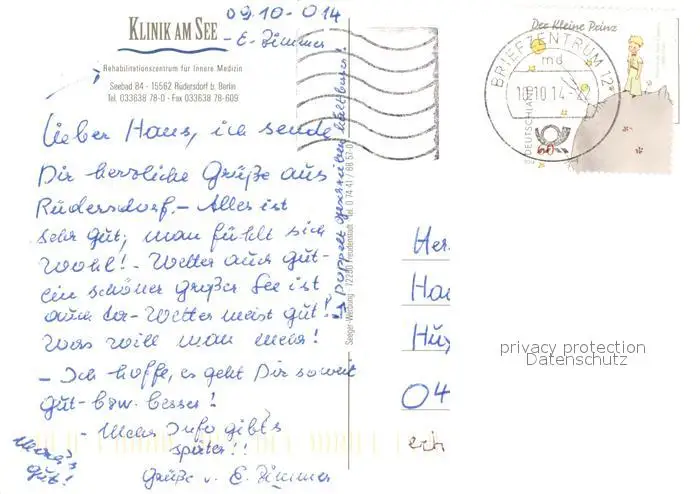 09.10-014
KLINIK AM SEE
- E. Zimmer
Rehabilitationszentrum für Innere Medizin
Seebad 84 - 15562 Rüdersdorf b. Berlin
Tel. 033638 78-0 - Fax 033638 78-609
Lieber Hans, ich sende
Dir herzliche Grüße aus
Rüdersdorf. - Alles ist
sehr gut, man fühlt sich
wohl! - Wetter auch gut -
ein schöner großer See ist
auch da - Wetter meist gut!
Was will man mehr!
- Ich hoffe, es geht Dir soweit
gut - bzw. besser!
- Mehr Info gibt's
später!!
Mach's
gut!
Grüße v. E. Zimmer
↳ Doppelt geschrieben hält besser!
Seeger-Werbung · 72280 Freudenstadt · Tel. 0 74 41 / 86 57-0
Der Kleine Prinz
BRIEFZENTRUM 12
md
10.10.14-22
DEUTSCHLAND
Her
Ha
04
privacy protection
Datenschutz